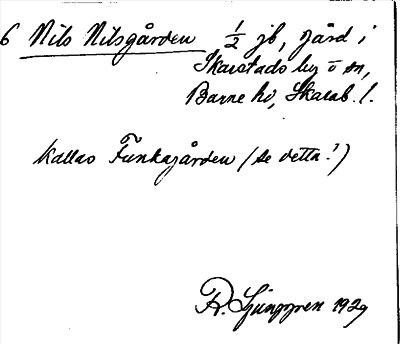 6 Nils Nilsgården 1/2 jb, gård i
Skarstads by o sn,
Barne hd, Skarab. l.
Kallas Funkagården (se detta!)
R. Ljunggren 1929